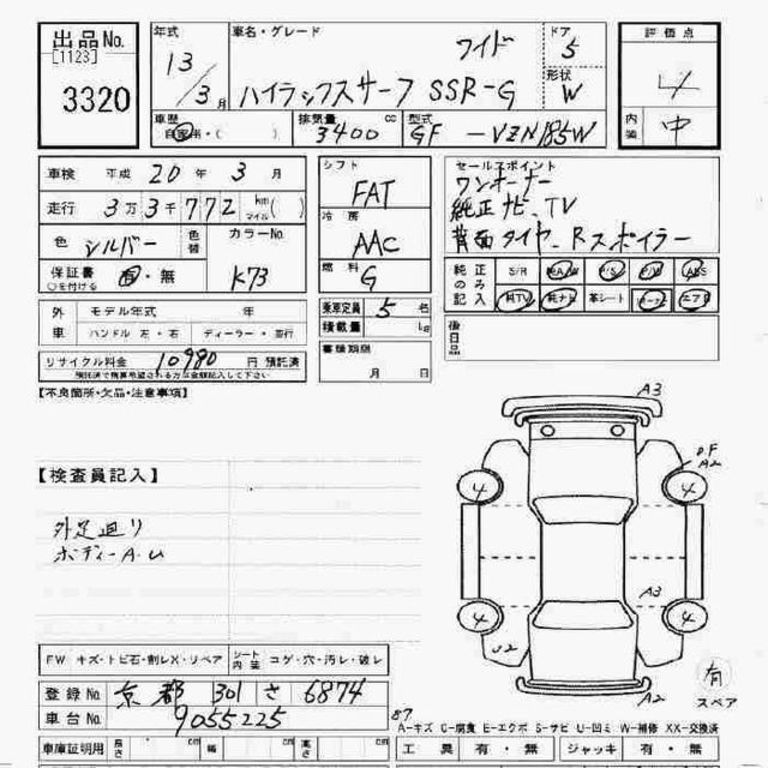 出品No. 年式 車名・グレード ワイド ドア 5 評価点
[1123] 13/3月 ハイラックスサーフ SSR-G 形状 W 4
3320 車歴 自家用・( ) 排気量 3400 cc 型式 GF-VZN185W 内装 中
車検 平成 20年 3月 シフト FAT セールスポイント
走行 3万3千772 km マイル ( ) 冷房 AAC ワンオーナー
純正ナビ、TV
色 シルバー 色替 カラーNo. K73 背面タイヤ、Rスポイラー
保証書 有・無 燃料 G 純正のみ記入 S/R 純A/W P/S P/W ABS
○を付ける 純TV 純ナビ 革シート エアB
外車 モデル年式 年 乗車定員 5名 後日品
ハンドル 左・右 ディーラー・並行 積載量 kg
リサイクル料金 10980円 預託済 書類期限
月 日
【不良箇所・欠品・注意事項】
A3
【検査員記入】 A2
4 4
外足廻り
ボディーA.U
A3
4 4
U2 有
スペア
FW キズ・トビ石・割レX・リペア シート内装 コゲ・穴・汚レ・破レ
A2
登録No. 京都 301 さ 6874
車台No. 9055225 87
A-キズ C-腐食 E-エクボ S-サビ U-凹ミ W-補修 XX-交換済
車庫証明用 長さ cm 幅 cm 高さ cm 工具 有・無 ジャッキ 有・無